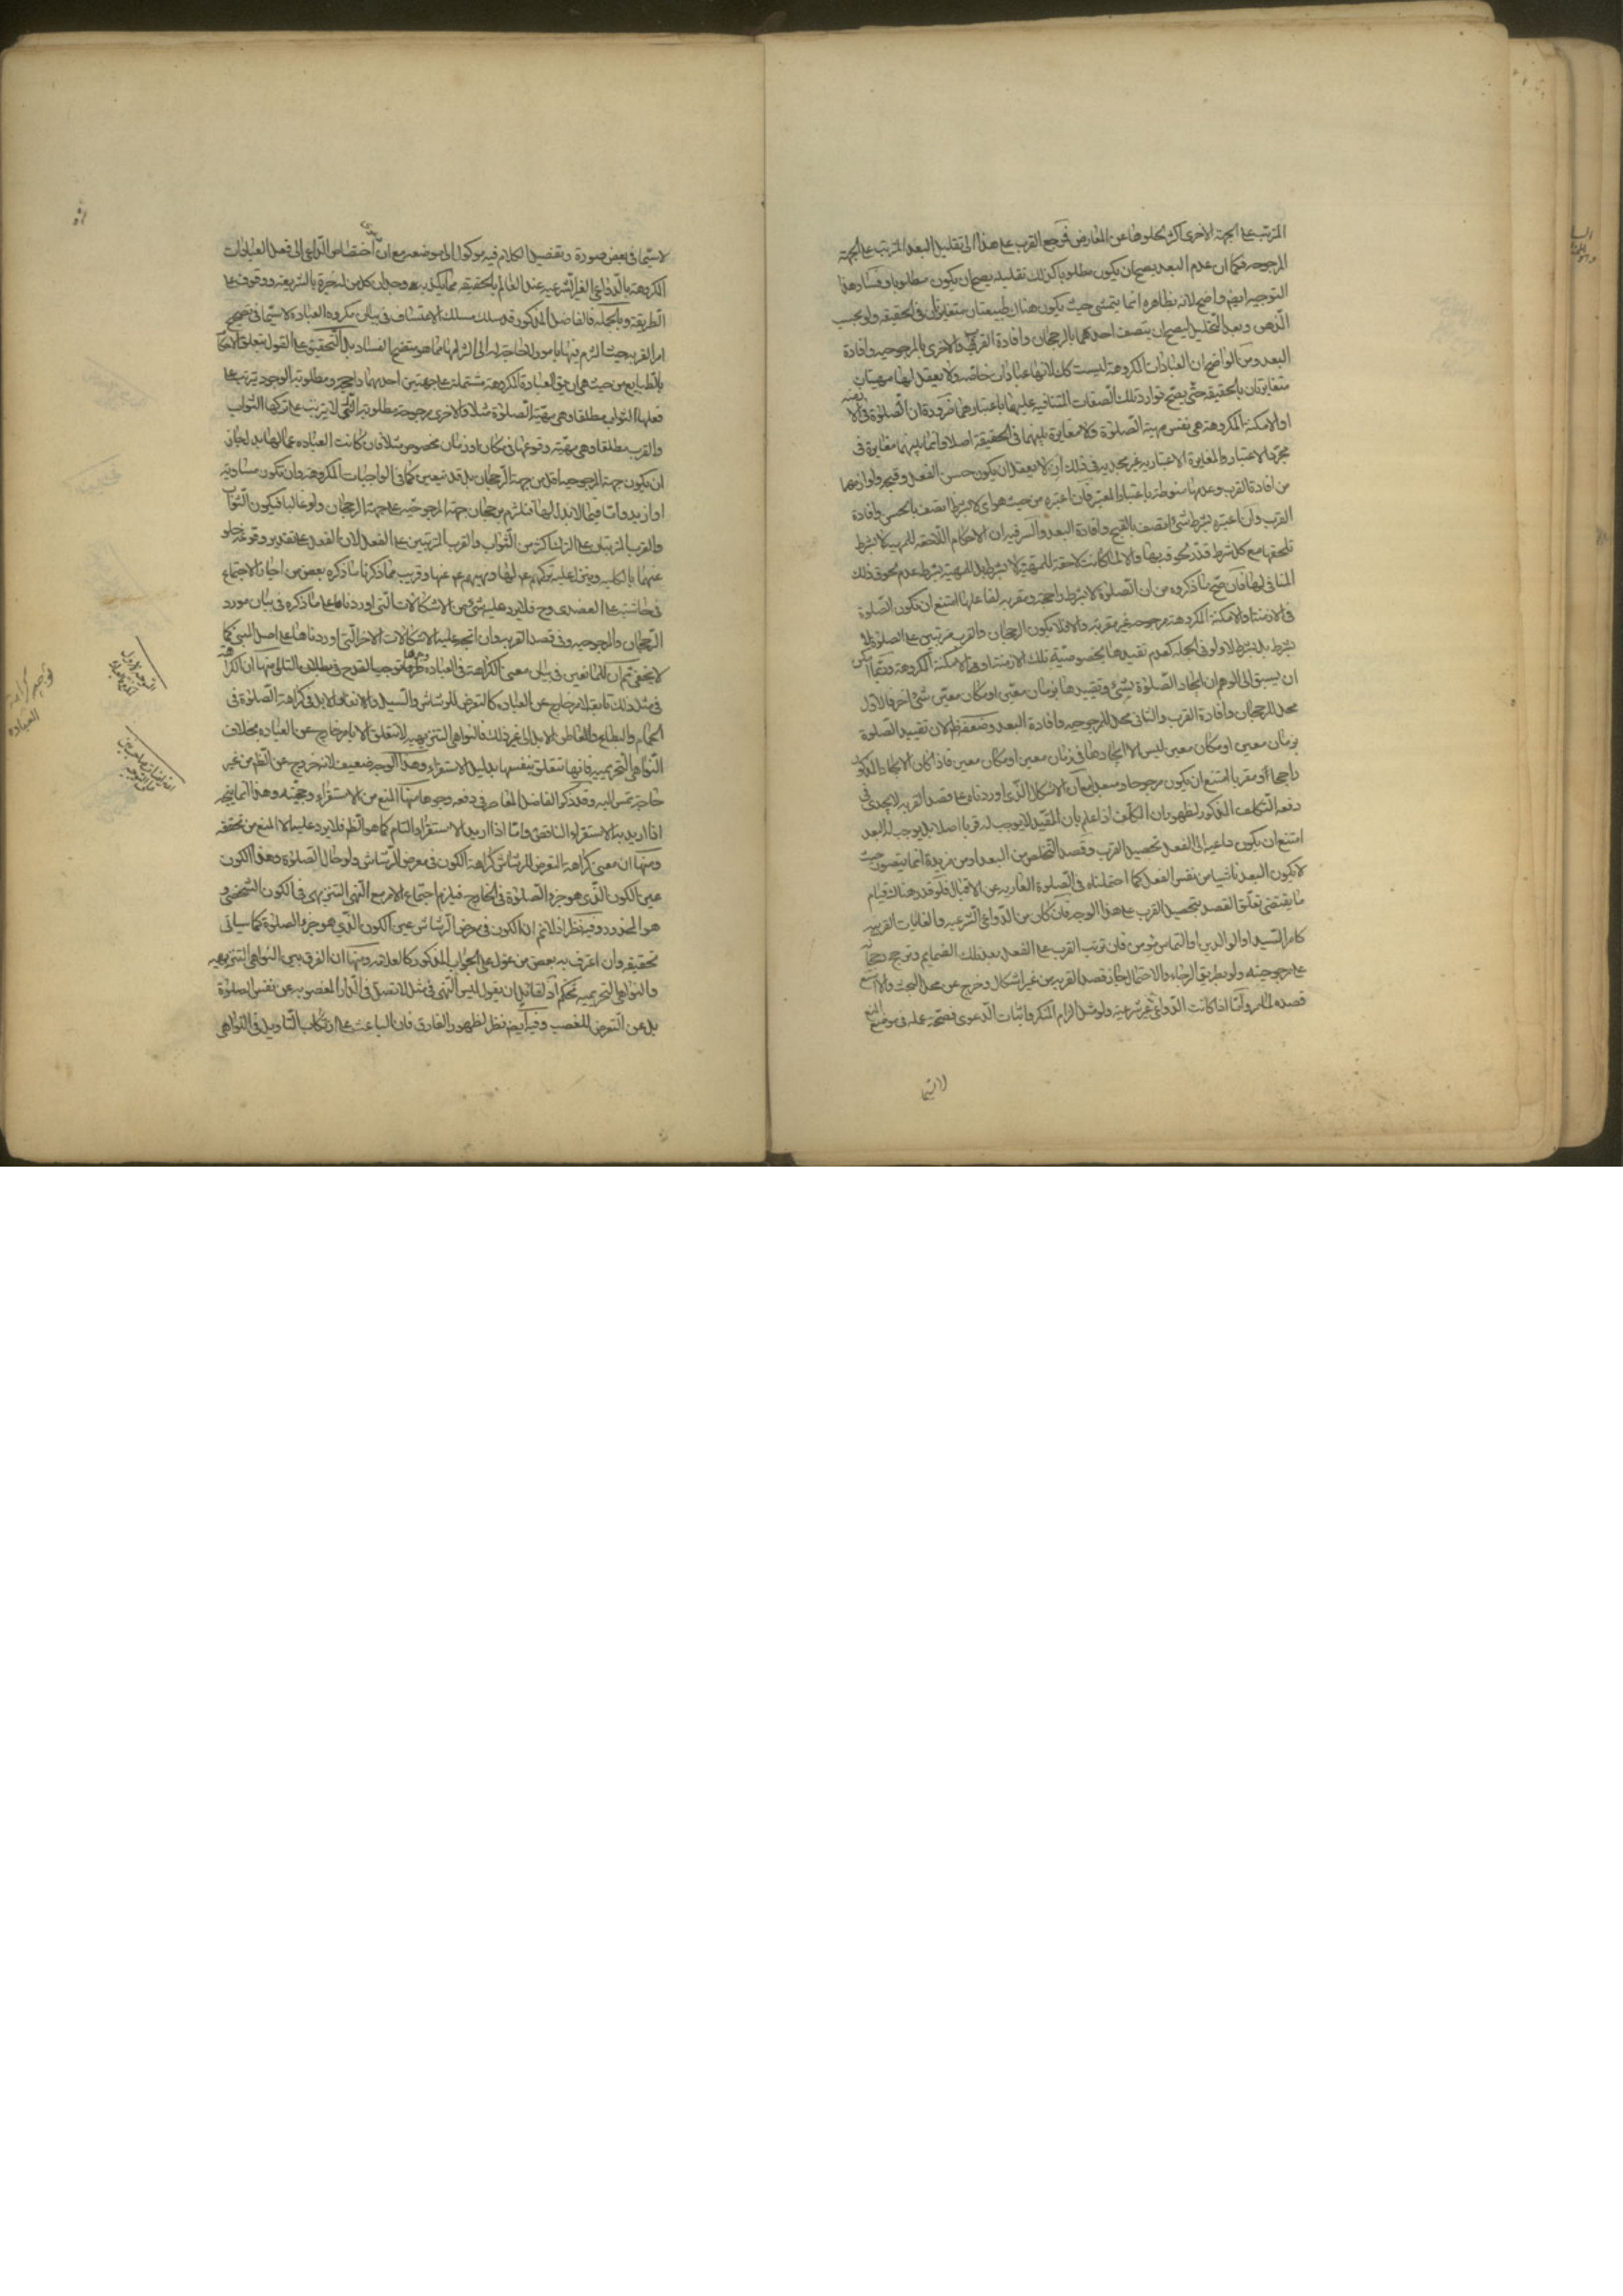 المترتب على الجهة الاخرى اكثر لخلوها عن المعارض فمرجع القرب على هذا الى تقليل البعد المترتب على الجهة
المرجوحة فكما ان عدم البعد يصح ان يكون مطلوبا كذلك تقليله يصح ان يكون مطلوبا وفساد هذا
التوجيه ايضا واضح لانه بظاهره انما يتمشى حيث يكون هناك طبيعتان متغايرتان في الحقيقة ولو بحسب
الذهن وبعد التحليل ليصح ان يتصف احدهما بالرجحان وافادة القرب والاخرى بالمرجوحية وافادة
البعد ومن الواضح ان العبادات المكروهة ليست كك لانها عبادات خاصة ولا يعقل لها مهيتان
متغايرتان بالحقيقة حتى يصح توارد تلك الصفات المتنافية عليهما باعتبارهما ضرورة ان الصلوة في الازمنة
او الامكنة المكروهة هي نفس مهية الصلوة ولا مغايرة بينهما في الحقيقة اصلا وانما بينهما مغايرة في
مجرد الاعتبار والمغايرة الاعتبارية غير مجدية في ذلك اذ لا يعقل ان يكون حسن الفعل وقبحه ولوازمهما
من افادة القرب وعدمها منوطة باعتبار المعتبر فان اعتبره من حيث هو اى لا بشرط اتصف بالحسن وافادة
القرب وان اعتبره بشرط شئ اتصف بالقبح وافادة البعد والسر فيه ان الاحكام اللاحقة للمهية لا بشرط
تلحقها مع كل شرط قدر لحوقه بها والا لما كانت لاحقة للمهية لا بشرط بل للمهية بشرط عدم لحوق ذلك
المنافى لها فان صح ما ذكروه من ان الصلوة لا بشرط راجحة ومقربة لفاعلها امتنع ان تكون الصلوة
في الازمنة او الامكنة المكروهة مرجوحة غير مقربة والا فلا يكون الرجحان والقرب مترتبين على الصلوة لا
بشرط بل بشرط لا ولو في الجملة كعدم تقييدها بخصوصية تلك الازمنة او الامكنة المكروهة وربما امكن
ان يسبق الى الوهم ان ايجاد الصلوة شئ وتقييدها بزمان معين او مكان معين شئ اخر فالاول
محل للرجحان وافادة القرب والثانى محل للمرجوحية وافادة البعد وضعفه ظ لان تقييد الصلوة
بزمان معين او مكان معين ليس الا ايجادها في زمان معين او مكان معين فاذا كان الايجاد المذكور
راجحا او مقربا امتنع ان يكون مرجوحا ومبعدا مع ان الاشكال الذى اوردناه على قصد القربة لا يجدى في
دفعه التكلف المذكور لظهور ان المكلف اذا علم بان المقيد لا يوجب له قربا اصلا بل يوجب له البعد
امتنع ان يكون داعيه الى الفعل تحصيل القرب وقصد التخلص من البعد او من مزيده انما يتصور حيث
لا يكون البعد ناشيا من نفس الفعل كما احتملناه في الصلوة العارية عن الاقبال فلو قدر هناك قيام
ما يقتضى تعلق القصد بتحصيل القرب على هذا الوجه فان كان من الدواعى الشرعية والغايات القريبة
كامر السيد او الوالدين او التماس مؤمن فان ترتب القرب على الفعل بعد تلك الضمايم وترجح رجحانه
على مرجوحيته ولو بطريق الرجاء والاحتمال جاز قصد القربة من غير اشكال وخرج عن محل البحث والا امتنع
قصده لما مر واما اذا كانت الدواعى غير شرعية ولو مثل الزام المنكر واثبات الدعوى فصحة عمله في موضع المنع
لا سيما
لا سيما في بعض صورة وتفصيل الكلام فيه موكول الى موضعه مع ان اختصاص الداعى الى فعل العبادات
المكروهة بالدواعى الغير الشرعية عند العالم بالحقيقة مما يكذبه وجدان كل من له خبرة بالشريعة ووقوف على
الطريقة وبالجملة فالفاضل المذكور قد سلك مسلك الاعتساف في بيان مكروه العبادة لا سيما في تصحيح
امر القربة حيث التزم فيها بامور لا حاجة له الى التزامها مما هو متضح الفساد بل التحقيق على القول بتعلق الاحكام
بالطبايع من حيث هي ان يق العبادة المكروهة مشتملة على جهتين احديهما راجحة ومطلوبة الوجود يترتب على
فعلها الثواب مطلقا وهي مهية الصلوة مثلا والاخرى مرجوحة مطلوبة الترك لا يترتب على تركها الثواب
والقرب مطلقا وهي مهية وقوعها في مكان او زمان مخصوص مثلا فان كانت العبادة مما لها بدل جاز
ان يكون جهة المرجوحية اقل من جهة الرجحان بل قد يتعين كما في الواجبات المكروهة وان تكون مساوية
او ازيد واما فيما لا بدل لها فيلزم رجحان جهة المرجوحية على جهة الرجحان ولو غالبا فيكون الثواب
والقرب المترتبان على الترك اكثر من الثواب والقرب المترتبين على الفعل لان الفعل على تقدير وقوعه خلو
عنهما بالكلية ويتنزل عليه تركهم ع لها ونهيهم ع عنها وقريب مما ذكرنا ما ذكره بعض من اجاز الاجتماع
في حاشيته على العضدى وح فلا يرد عليه شئ من الاشكالات التى اوردناها على ما ذكره في بيان مورد
الرجحان والمرجوحية وفى قصد القربة وان اتجه عليه الاشكالات الاخر التى اوردناها على اصل المبنى كما
لا يخفى ثم ان للمانعين في بيان معنى الكراهة في العبادة وجوها توجب القدح في بطلان التالى منها ان الكراهة
في مثل ذلك متعلقة بامر خارج عن العبادة كالتعرض للرشاش والسيل والانفعال الابل في كراهة الصلوة في
الحمام والبطايح والمعاطن الابل الى غير ذلك فالنواهى التنزيهية لا تتعلق الا بامر خارج عن العبادة بخلاف
النواهى التحريمية فانها تتعلق بنفسها بدليل الاستقراء وهذا الوجه ضعيف لانه خروج عن الظم من غير
حاجة تمس اليه وقد ذكر الفاضل المعاصر في دفعه وجوها منها المنع من الاستقراء وحجيته وهذا انما يتجه
اذا اريد به الاستقراء الناقص واما اذا اريد الاستقراء التام كما هو الظم فلا يرد عليه الا المنع من تحققه
ومنها ان معنى كراهة التعرض للرشاش كراهة الكون في معرض الرشاش ولو حال الصلوة وهذا الكون
عين الكون الذى هو جزء الصلوة في الخارج فيلزم اجتماع الامر مع النهى التنزيهى في الكون الشخصى و
هو المحذور وفيه نظر اذ لا نم ان الكون في معرض الرشاش عين الكون الذى هو جزء الصلوة كما سياتى
تحقيقه وان اعترف به بعض من عول على الجواب المذكور كالعلامة ومنها ان الفرق بين النواهى التنزيهية
والنواهى التحريمية تحكم اذ لقائل ان يقول ليس النهى في مثل لا تصل في الدار المغصوبة عن نفس الصلوة
بل عن التعرض للغصب وفيه ايضا نظر لظهور الفارق فان الباعث على ارتكاب التاويل في النواهى
توجيه كراهة
العبادة